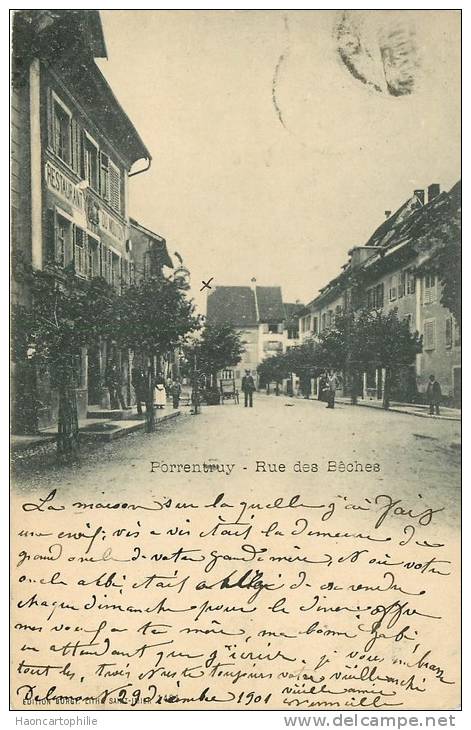 RESTAURANT DU MOUTON
Porrentruy - Rue des Bêches
La maison sur la quelle j'ai fais
une croix, vis à vis était la demeure du
grand oncle de votre grandmère, et où votre
oncle abbé était obligé de se rendre
chaque dimanche pour le diner offre
mes voeux a ta mère, ma bonne Gabé
en attendant que j'écrive, je vous embrasse
tout les trois Reste toujours votre vieille
vieille amie
Delemont 29 décembre 1901
EDITION BURGY, LITH. SAINT-IMIER
© Haoncartophile
http://www.delcampe.net